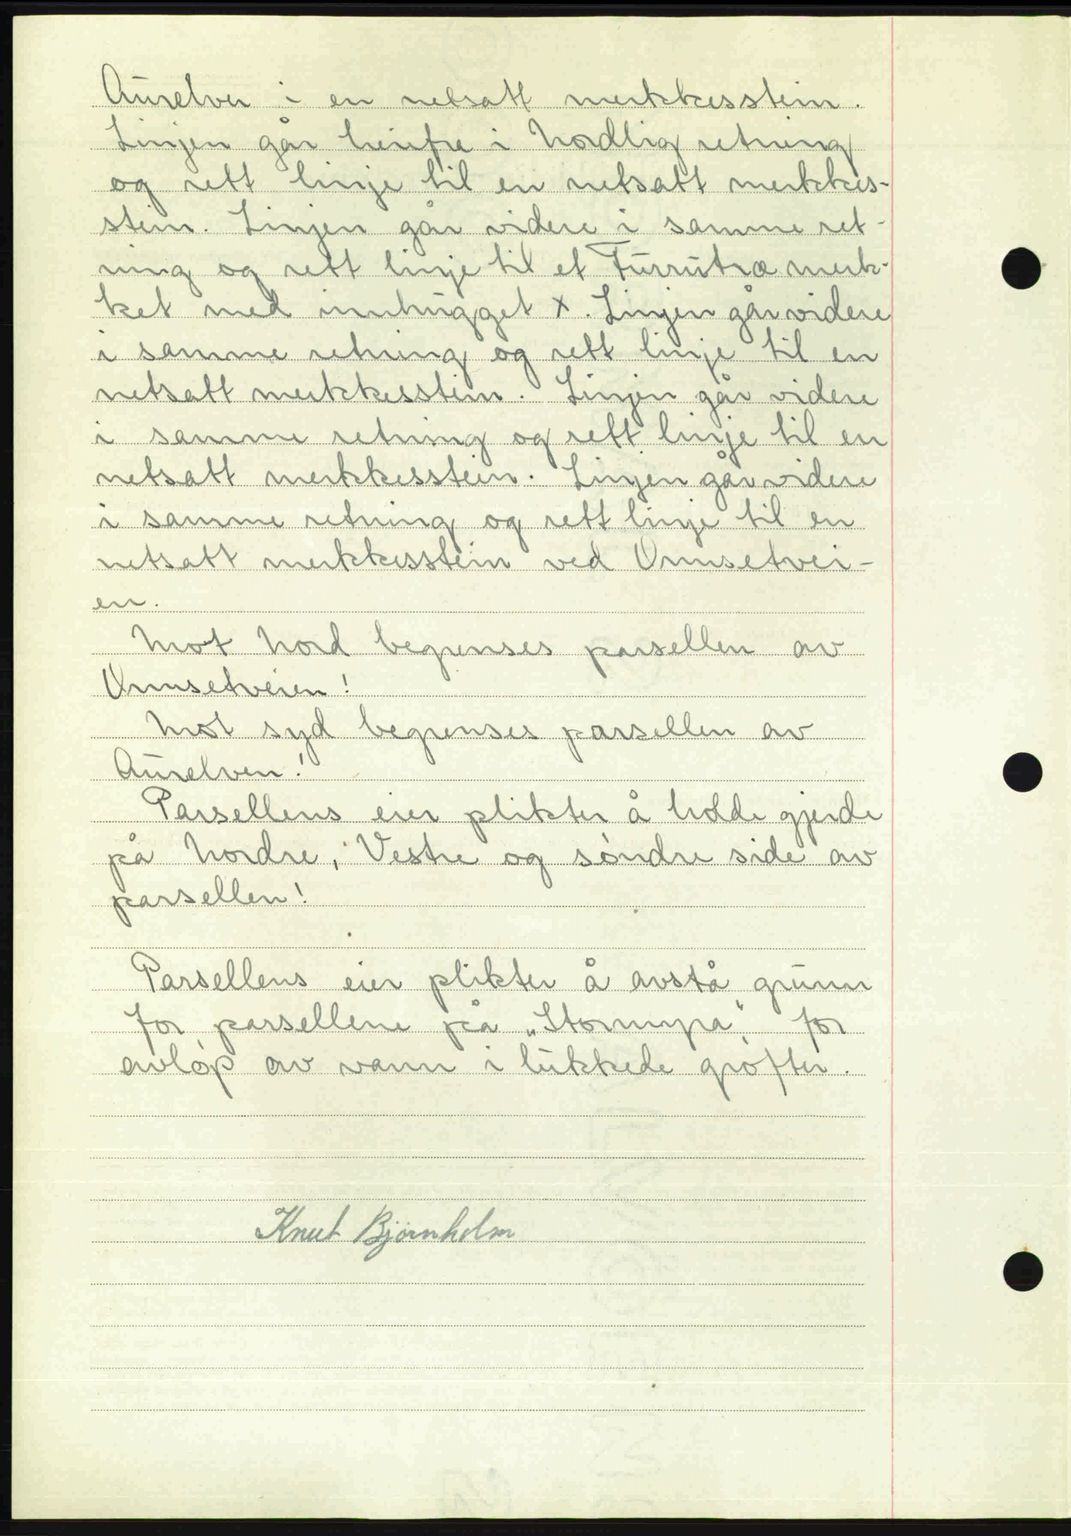 Aurelven i en netsatt merkkesstein.
Linjen går herifra i Nordlig retning
og rett linje til en netsatt merkkes-
stein. Linjen går videre i samme ret-
ning og rett linje til et Furrutræ merk-
ket med innhugget x. Linjen går videre
i samme retning og rett linje til en
netsatt merkkesstein. Linjen går videre
i samme retning og rett linje til en
netsatt merkkesstein. Linjen går videre
i samme retning og rett linje til en
netsatt merkkesstein ved Unnsetvei-
en.
Mot Nord begrenses parsellen av
Unnsetveien!
Mot syd begrenses parsellen av
Aurelven!
Parsellens eier plikter å holde gjerde
på Nordre, Vestre og søndre side av
parsellen!
Parsellens eier plikter å avstå grunn
for parsellene på „Stormyra“ for
avløp av vann i lukkede grøfter.
Knut Bjørnholm